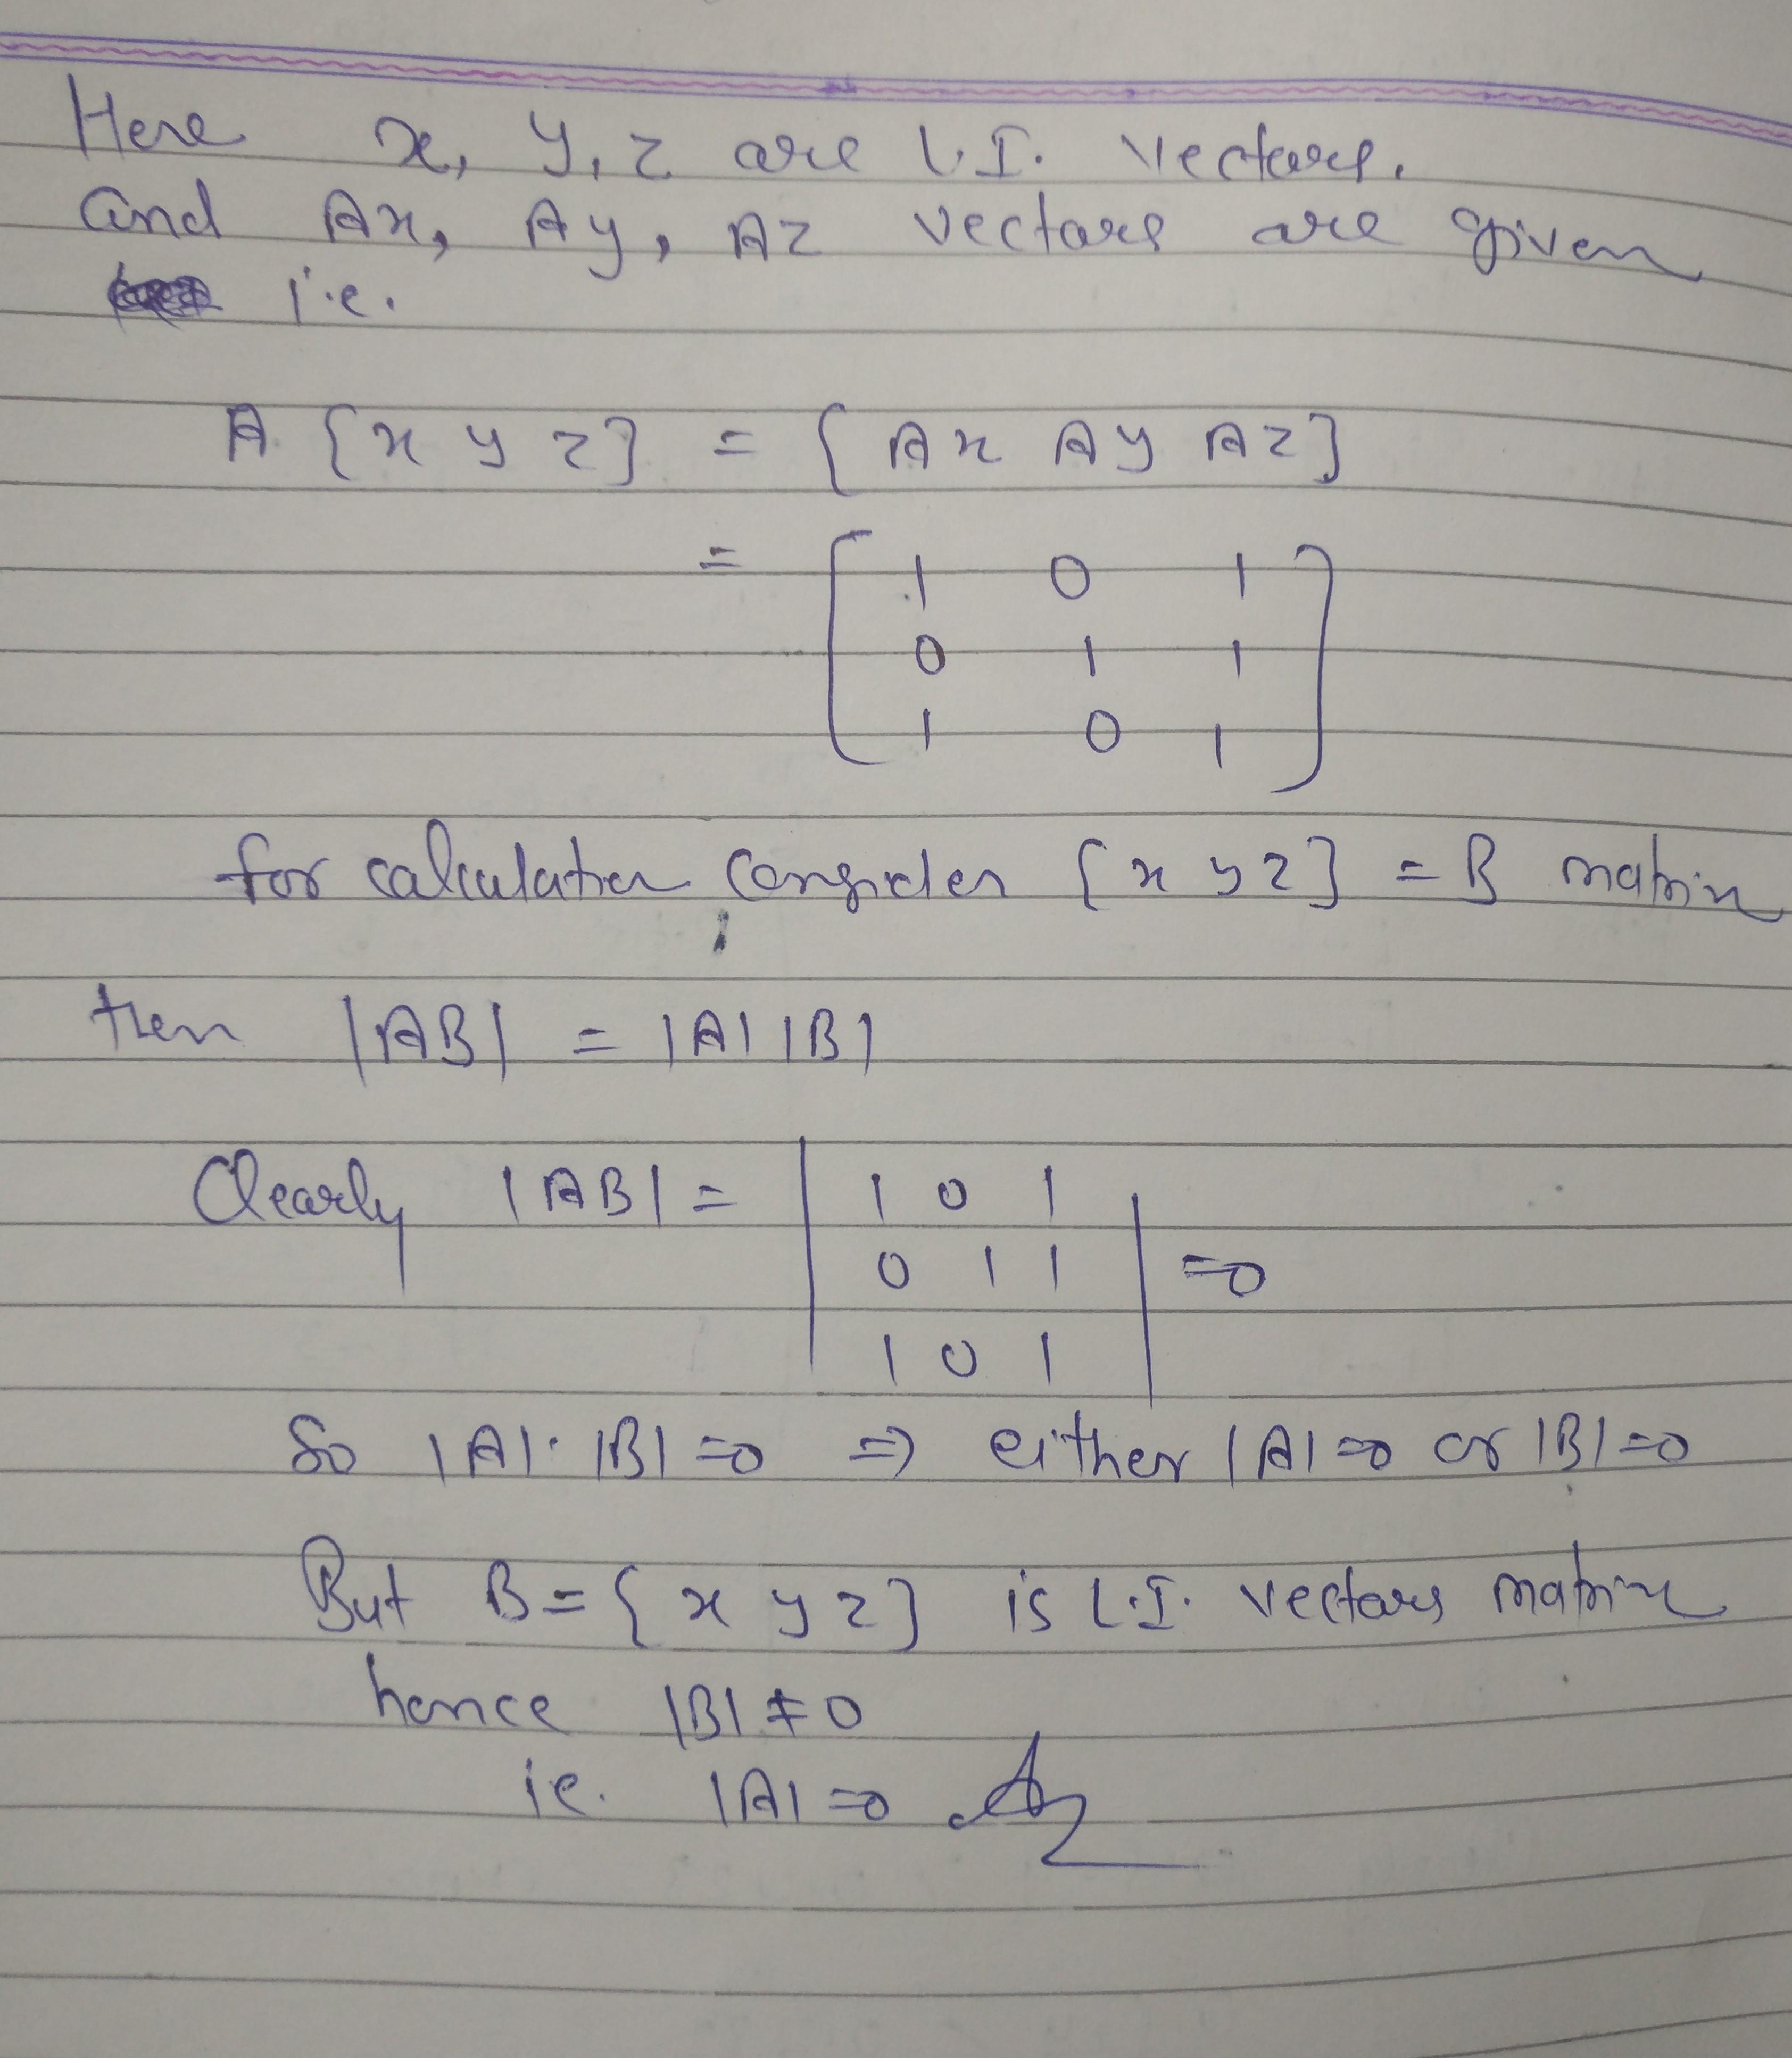 Here x, y, z are L.I. vectors.
and Ax, Ay, Az vectors are given
i.e.
A [x y z] = [Ax Ay Az]
= [1 0 1
0 1 1
1 0 1]
for calculation consider [x y z] = B matrix
then |AB| = |A| |B|
Clearly |AB| = |1 0 1
0 1 1| =0
1 0 1
So |A|·|B| =0 ⇒ either |A| =0 or |B| =0
But B = [x y z] is L.I. vectors matrix
hence |B| ≠ 0
ie. |A| =0